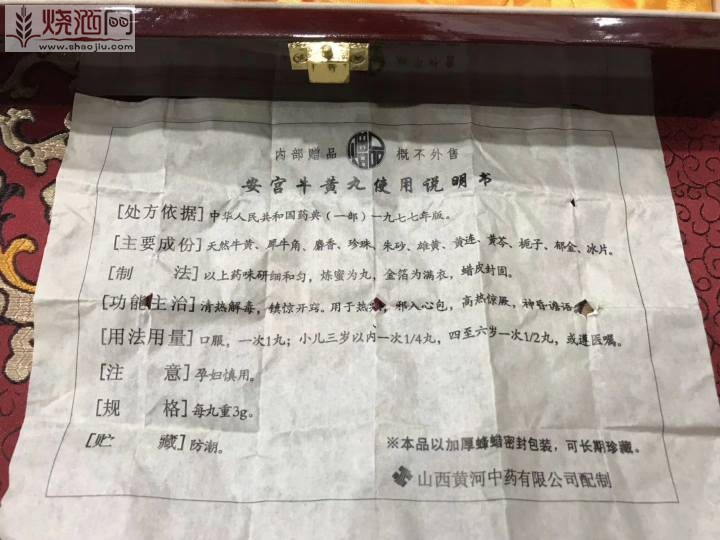 烧酒网
www.shaojiu.com
内部赠品 概不外售
安宫牛黄丸使用说明书
[处方依据]中华人民共和国药典（一部）一九七七年版。
[主要成份]天然牛黄、犀牛角、麝香、珍珠、朱砂、雄黄、黄连、黄芩、栀子、郁金、冰片。
[制 法]以上药味研细和匀，炼蜜为丸，金箔为满衣，蜡皮封固。
[功能主治]清热解毒，镇惊开窍。用于热 ，邪入心包，高热惊厥，神昏谵语
[用法用量]口服，一次1丸；小儿三岁以内一次1/4丸，四至六岁一次1/2丸，或遵医嘱。
[注 意]孕妇慎用。
[规 格]每丸重3g。
[贮 藏]防潮。
※本品以加厚蜂蜡密封包装，可长期珍藏。
山西黄河中药有限公司配制